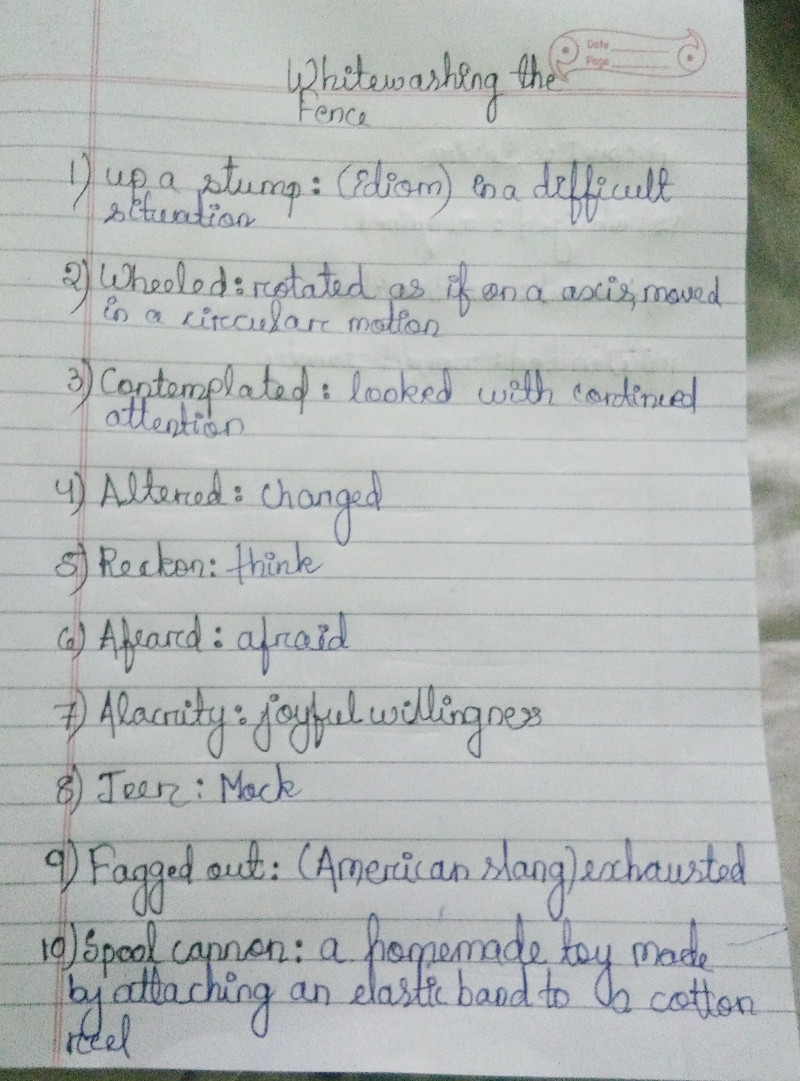 Date
Page
Whitewashing the
Fence
1) up a stump: (idiom) in a difficult
situation
2) Wheeled: rotated as if on a axis, moved
in a circular motion
3) Contemplated: looked with continued
attention
4) Altered: changed
5) Reckon: think
6) Afeard: afraid
7) Alacrity: joyful willingness
8) Jeer: Mock
9) Fagged out: (American slang) exhausted
10) Spool cannon: a homemade toy made
by attaching an elastic band to a cotton
reel